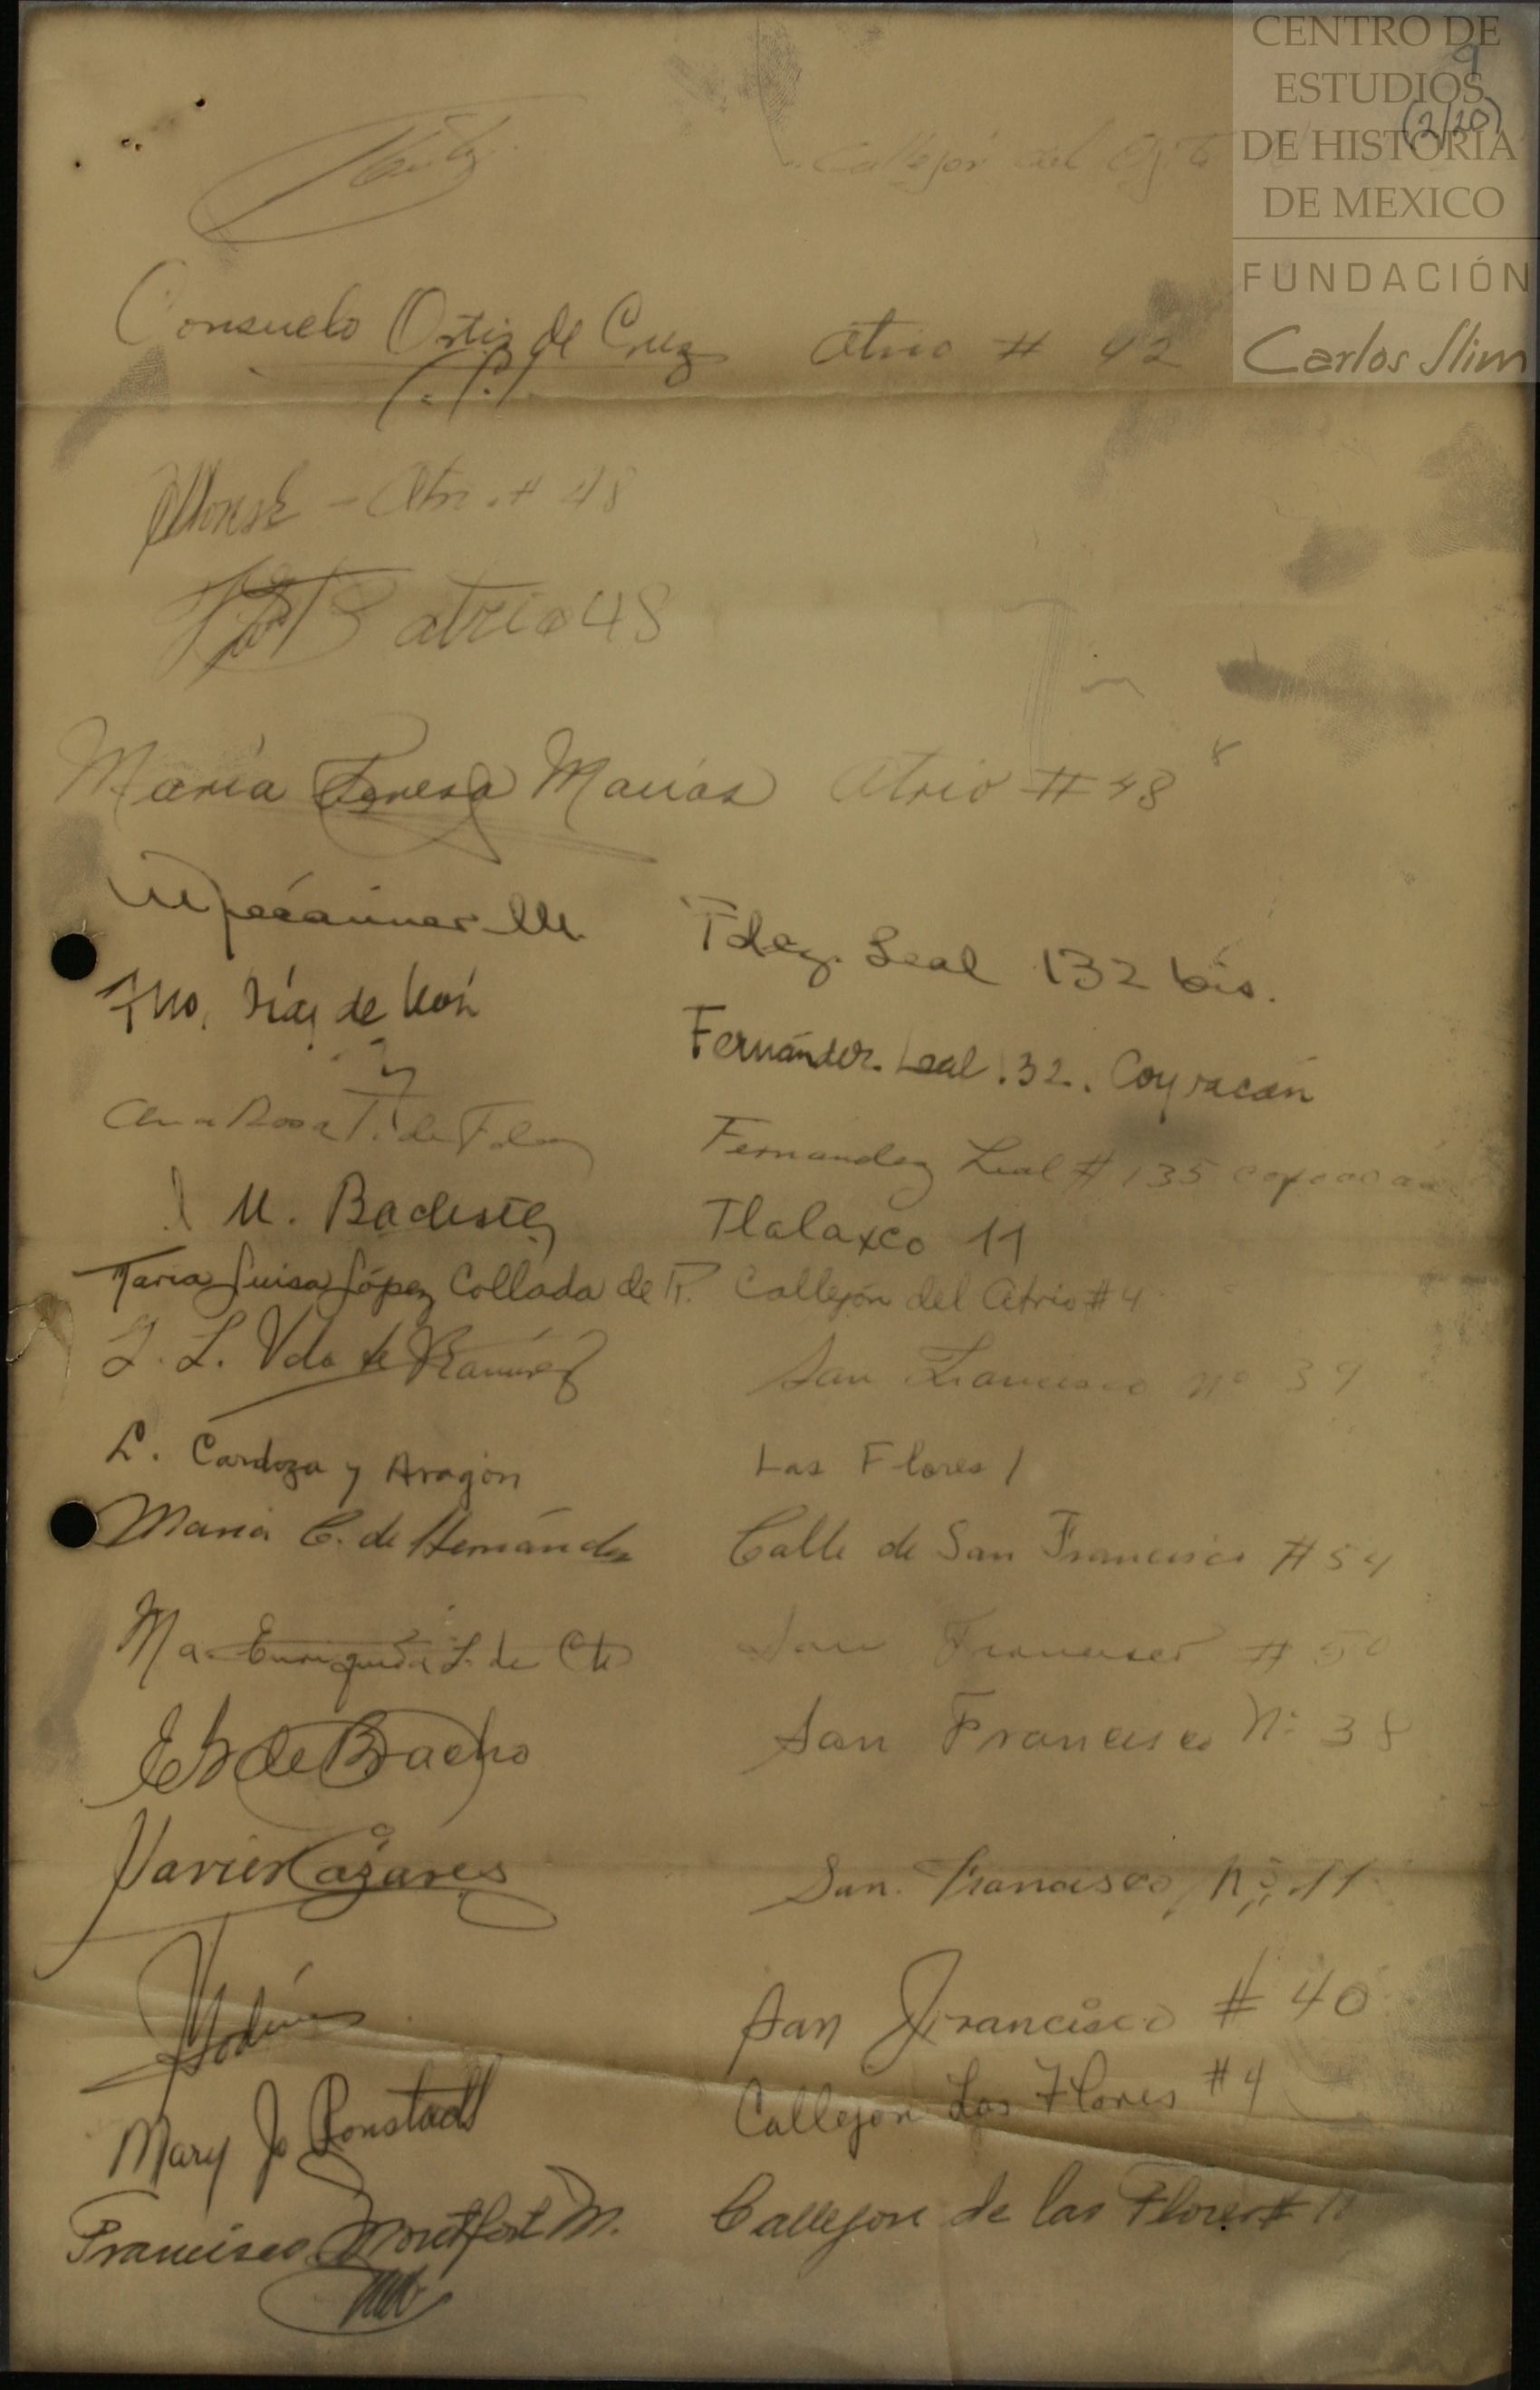 CENTRO DE
ESTUDIOS
DE HISTORIA
DE MEXICO
FUNDACIÓN
Carlos Slim
9
(2/20)
Callejón del
Consuelo Ortiz de Cruz Atrio # 42
(.P.)
- Atri. # 48
atrio 48
María Teresa Macías Atrio # 48
Fdez. Leal 132 bis.
Fno. Díaz de León Fernández. Leal 132. Coyoacán
Ana Rosa T. de Fdez Fernandez Leal # 135 coyoacan
M. Tlalaxco 11
María Luisa López Collada de R. Callejón del Atrio # 4
L. L. Vda de Ramírez San Francisco No 39
L. Cardoza y Aragón Las Flores 1
María C. de Hernández Calle de San Francisco # 54
Ma. Enriqueta L. de San Francisco # 50
de Bracho San Francisco No 38
Javier Cázares San. Francisco, No. 11
San Francisco # 40
Mary Jo Ronstadt Callejon Las Flores # 4
Francisco Montfort M. Callejon de las Flores #